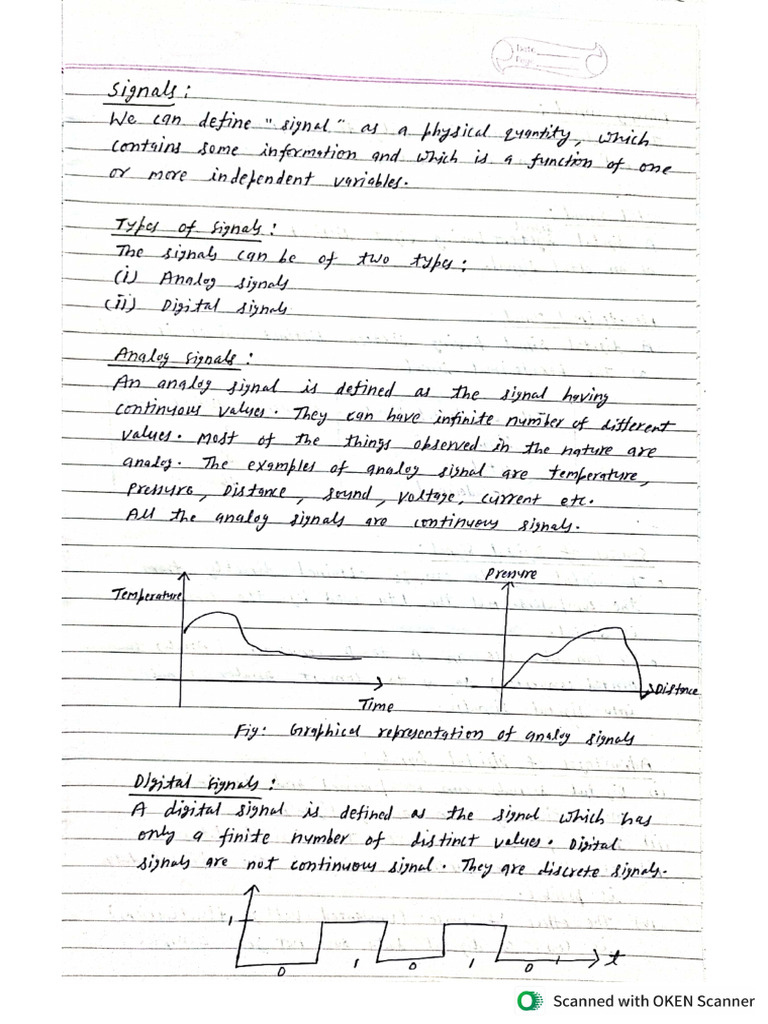 Date
Page
Signals:
We can define "signal" as a physical quantity, which
contains some information and which is a function of one
or more independent variables.
Types of signals:
The signals can be of two types:
(i) Analog signals
(ii) Digital signals
Analog signals:
An analog signal is defined as the signal having
continuous values. They can have infinite number of different
values. Most of the things observed in the nature are
analog. The examples of analog signal are temperature,
Pressure, Distance, sound, voltage, current etc.
All the analog signals are continuous signals.
Temperature
Time
Pressure
Distance
Fig: Graphical representation of analog signals
Digital signals:
A digital signal is defined as the signal which has
only a finite number of distinct values. Digital
signals are not continuous signal. They are discrete signals.
1
0 1 0 1 0 1 t
Scanned with OKEN Scanner